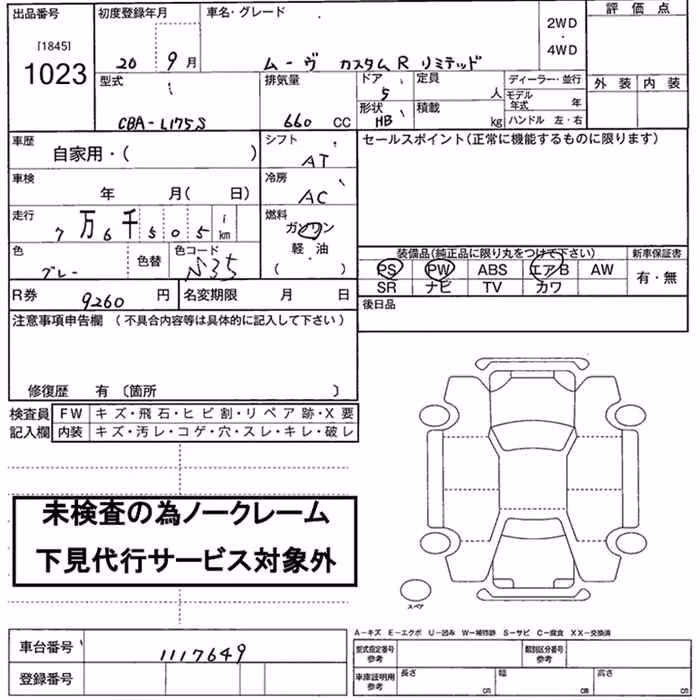 出品番号 初度登録年月 車名・グレード 2WD・4WD 評価点
[1845]
1023 20 9月 ムーヴ カスタムR リミテッド
型式 排気量 ドア 定員 ディーラー・並行 外装 内装
5 人 モデル年式 年
CBA-L175S 660 CC 形状 HB 積載 kg ハンドル 左・右
車歴 シフト セールスポイント(正常に機能するものに限ります)
自家用・( ) AT
車検 冷房
年 月( 日) AC
走行 燃料
7万6千505 i km ガソリン
色 色替 色コード 軽・油 装備品(純正品に限り丸をつけて下さい) 新車保証書
グレー N35 ( ・ ) PS PW ABS エアB AW 有・無
SR ナビ TV カワ
R券 9260円 名変期限 月 日 後日品
注意事項申告欄 (不具合内容等は具体的に記入して下さい)
修復歴 有〔箇所 〕
検査員 FW キズ・飛石・ヒビ割・リペア跡・X要
記入欄 内装 キズ・汚レ・コゲ・穴・スレ・キレ・破レ
未検査の為ノークレーム
下見代行サービス対象外
スペア
A-キズ E-エクボ U-凹み W-補修跡 S-サビ C-腐食 XX-交換済
車台番号 1117649 型式指定番号 参考 類別区分番号 参考
登録番号 車庫証明用 参考 長さ cm 幅 cm 高さ cm